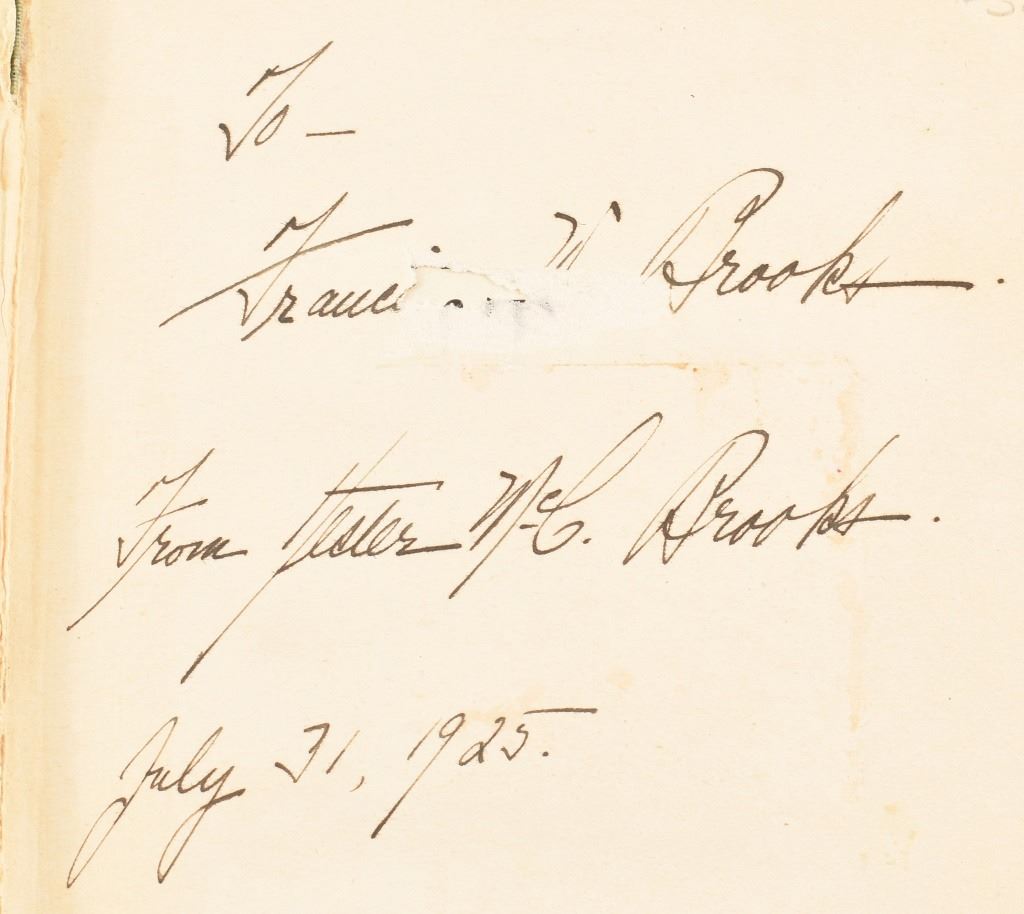 To —
Franci Brooks.
From Hester McC. Brooks.
July 31, 1925.